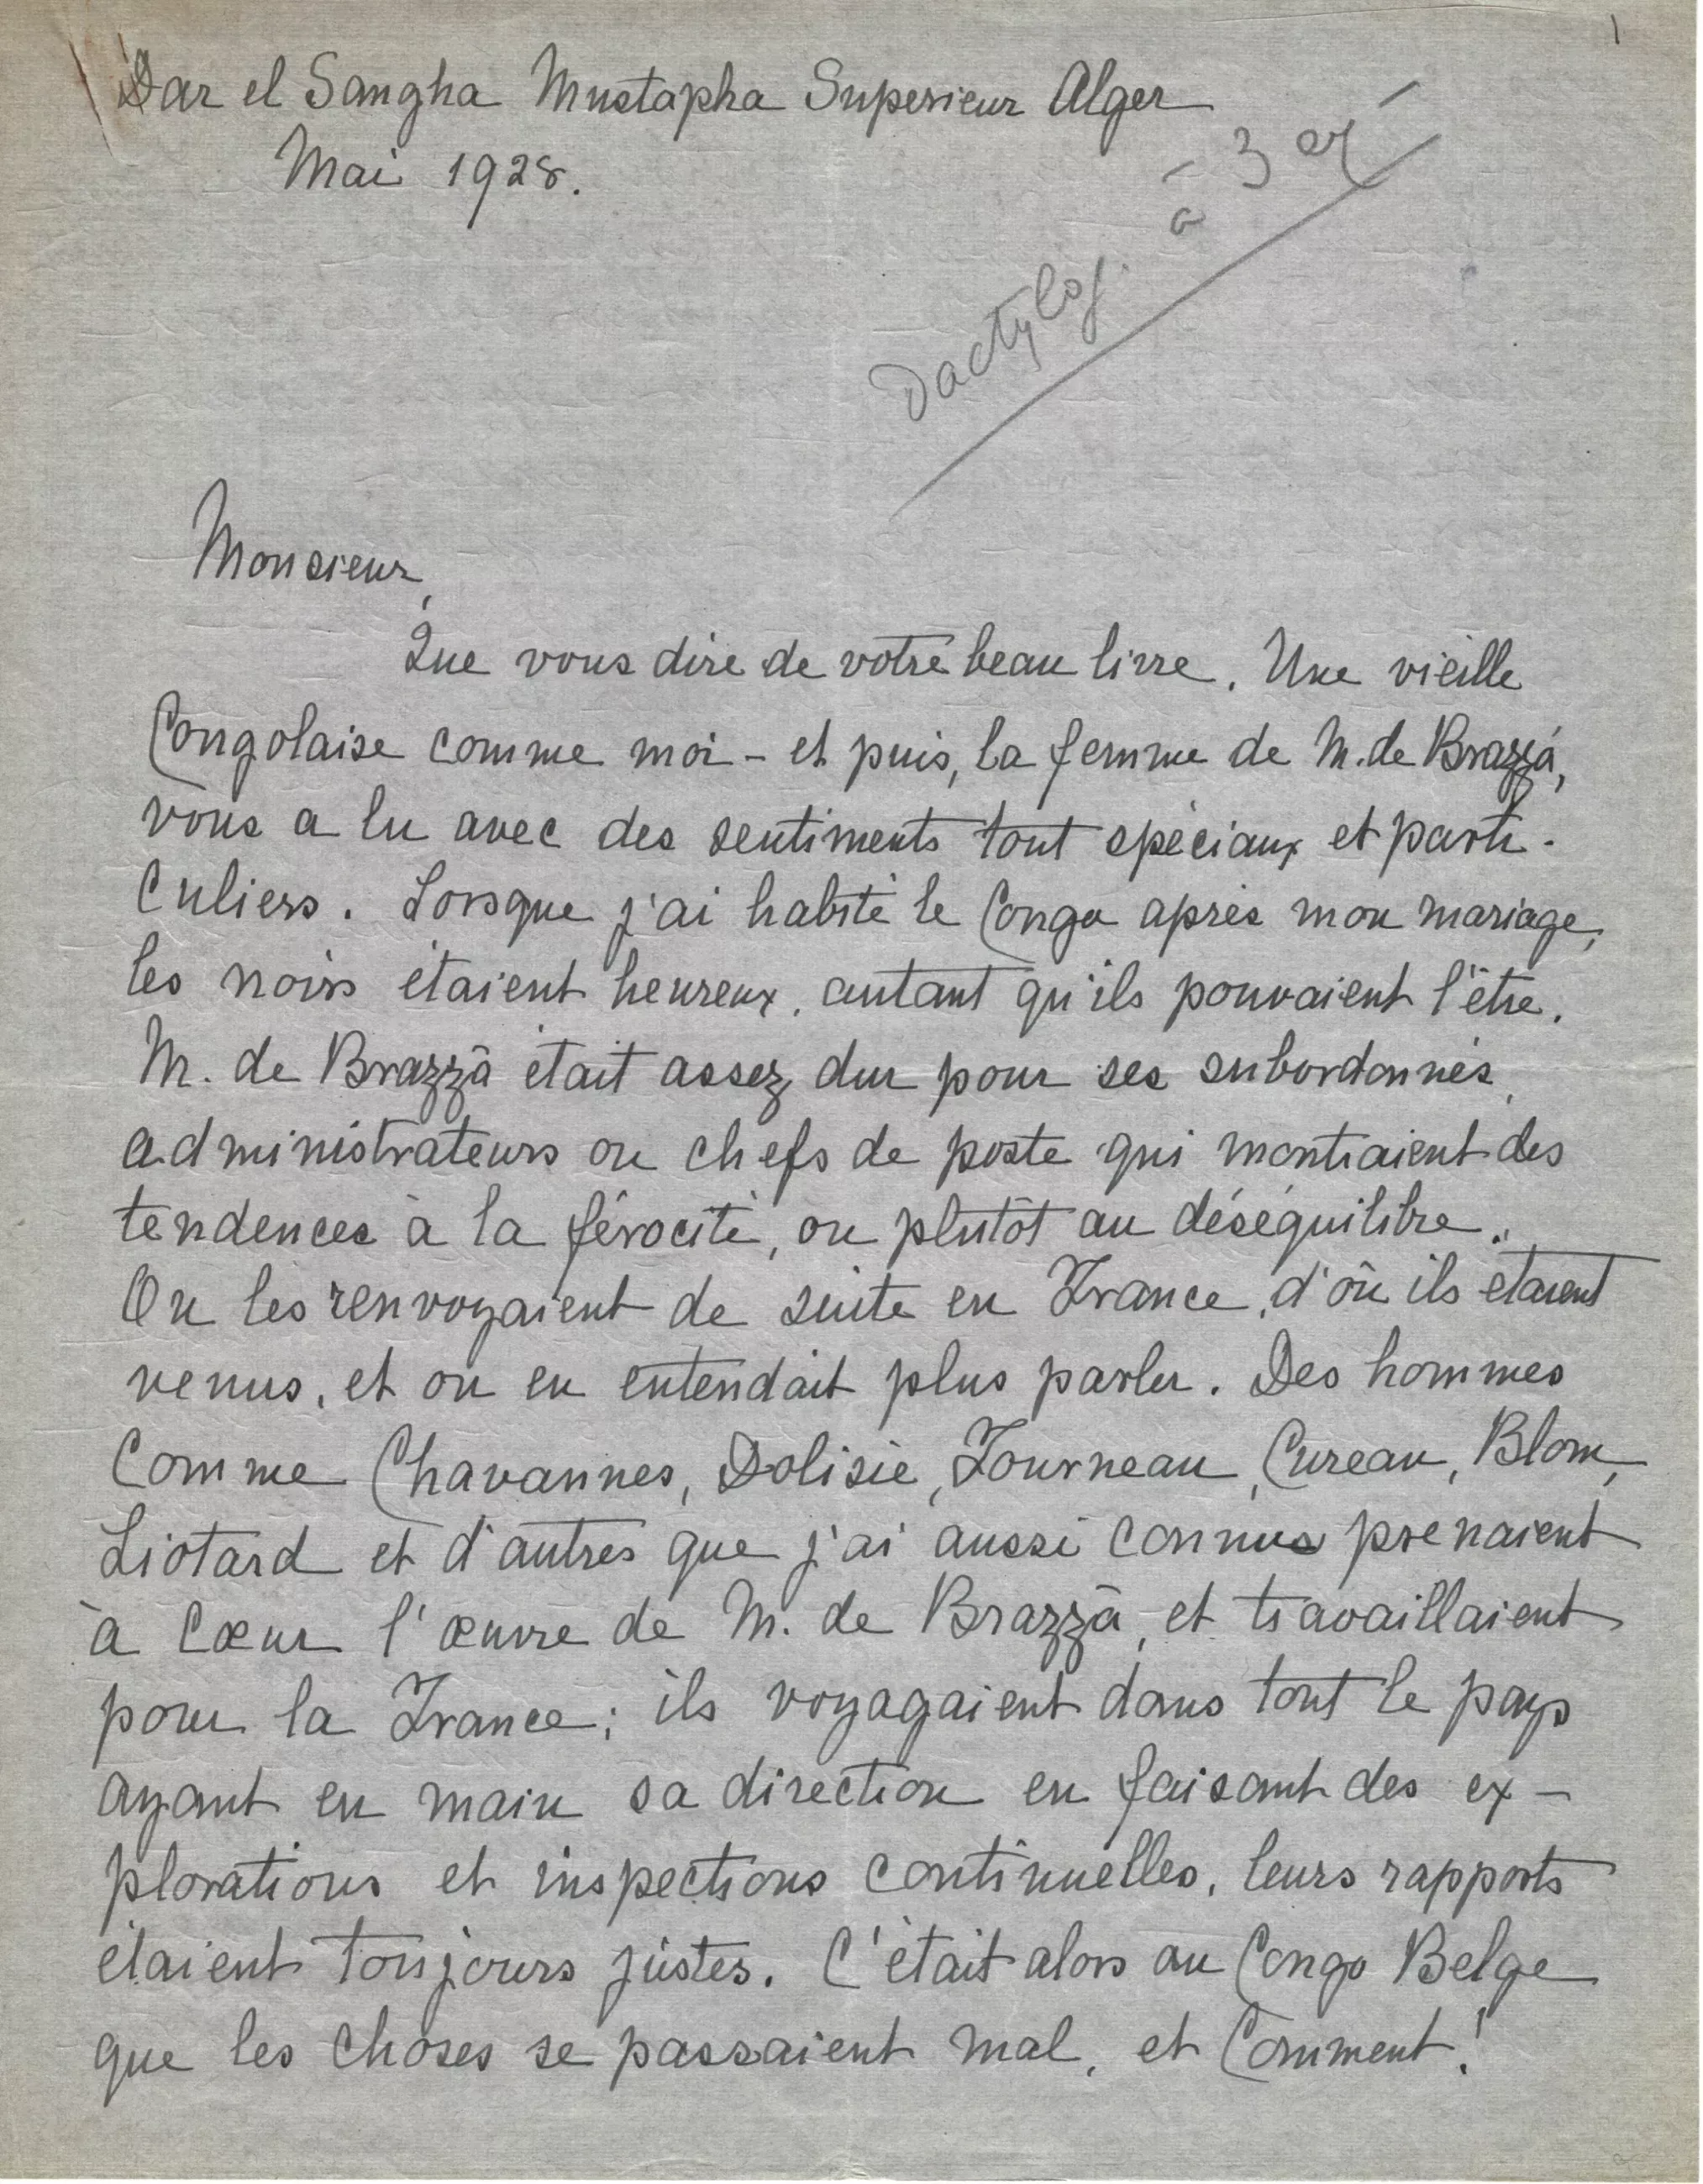 1
Dar el Sangha Mustapha Superieur Alger
Mai 1928.
Dactylog. à 3 ex
Monsieur,
Que vous dire de votre beau livre. Une vieille
Congolaise comme moi - et puis, la femme de M. de Brazzà,
vous a lu avec des sentiments tout spéciaux et parti-
culiers. Lorsque j'ai habité le Congo après mon mariage,
les noirs étaient heureux, autant qu'ils pouvaient l'être.
M. de Brazzà était assez dur pour ses subordonnés,
administrateurs ou chefs de poste qui montraient des
tendences à la férocité, ou plutôt au déséquilibre.
On les renvoyaient de suite en France, d'où ils étaient
venus, et on en entendait plus parler. Des hommes
comme Chavannes, Dolisie, Fourneau, Cureau, Blom,
Liotard et d'autres que j'ai aussi connus prenaient
à cœur l'œuvre de M. de Brazzà, et travaillaient
pour la France; ils voyagaient dans tout le pays
ayant en main sa direction en faisant des ex-
plorations et inspections continuelles, leurs rapports
étaient toujours justes. C'était alors au Congo Belge
que les choses se passaient mal, et Comment!